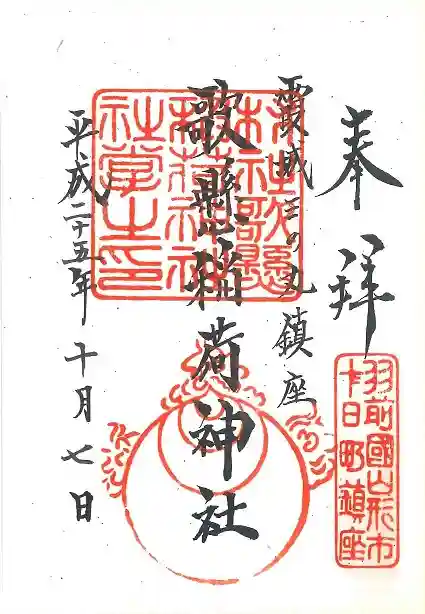 奉拝
霞城三の丸鎮座
歌懸稲荷神社
平成二十五年十月七日
村社歌懸
稲荷神社
社掌之印
羽前國山形市
十日町鎮座